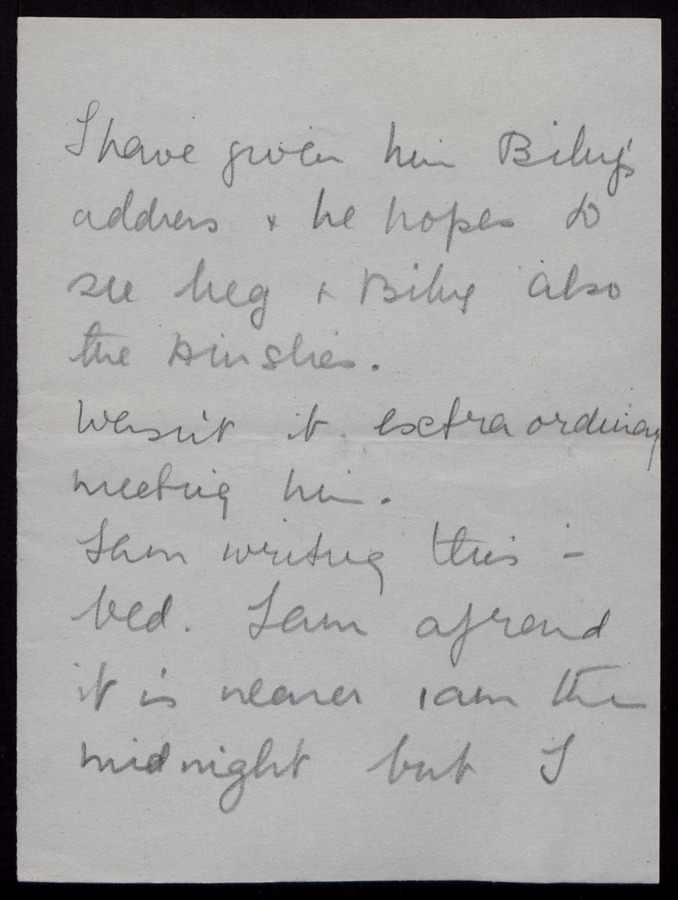 I have given him Biluj's
address & he hopes to
see heg & Biluj also
the
Wasn't it extraordinary
meeting him.
I am writing this in
bed. I am afraid
it is nearer 1 am than
midnight but I